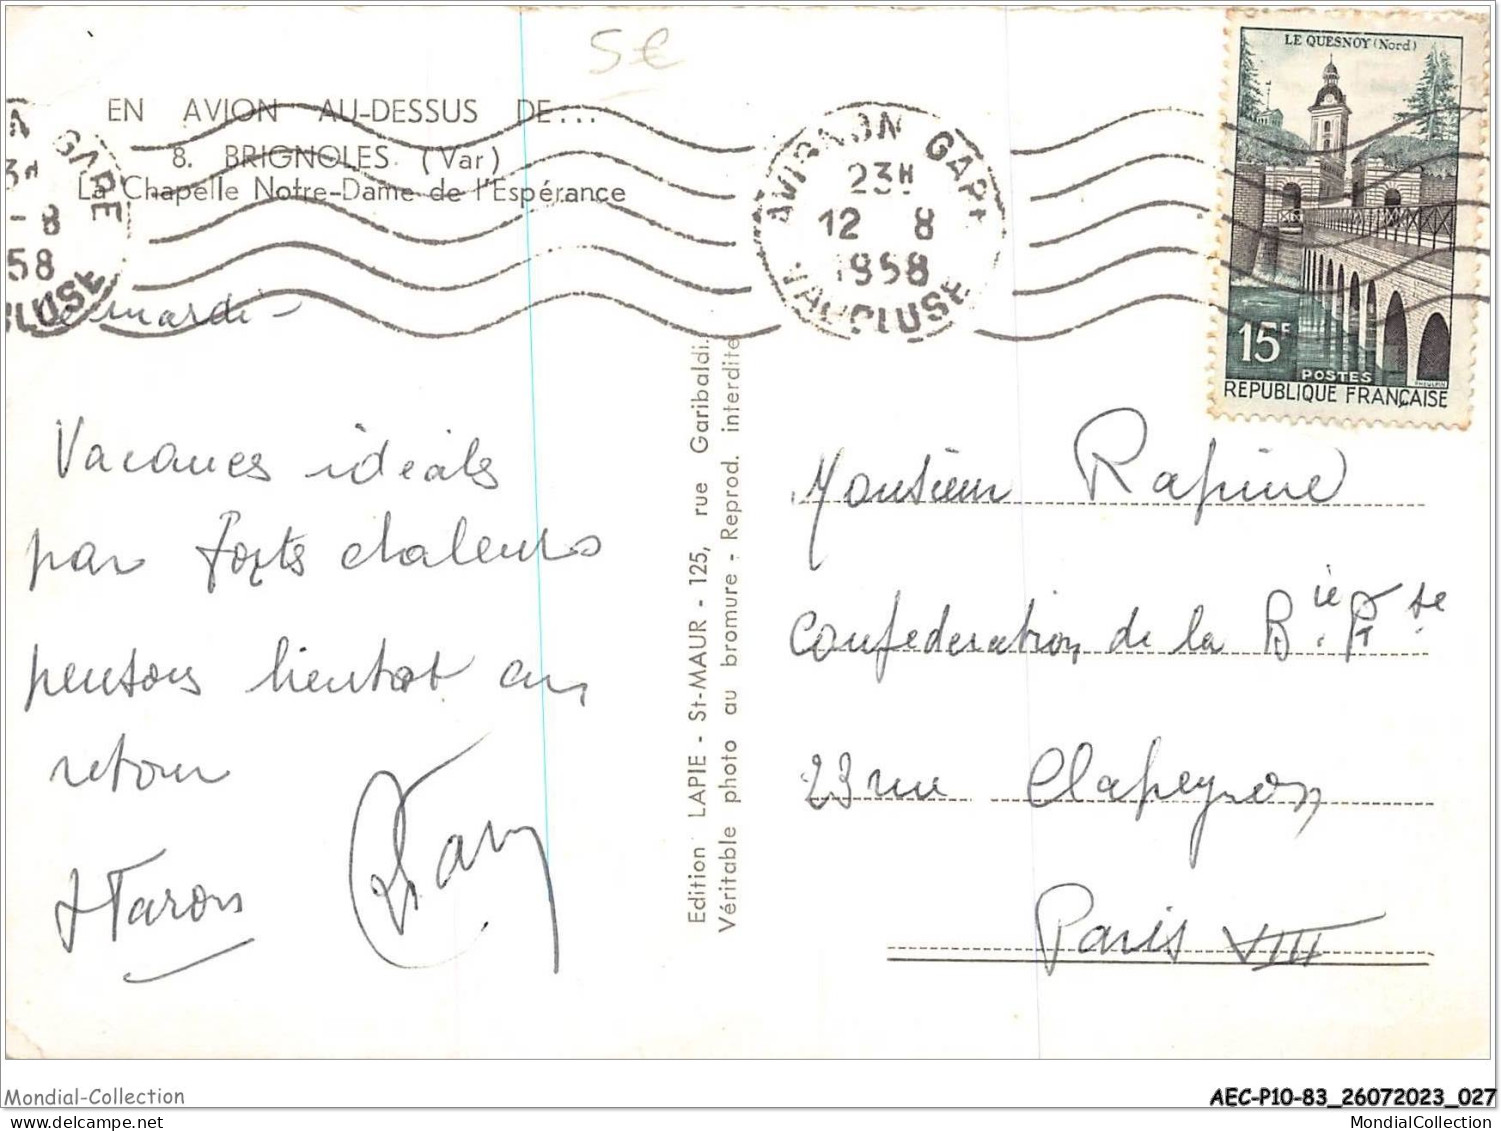 5€
EN AVION AU-DESSUS DE...
8. BRIGNOLES (Var)
La Chapelle Notre-Dame de l'Espérance
GARE
- 8
58
AVIGNON GARE
23H
12 8
1958
VAUCLUSE
LE QUESNOY (Nord)
15F
POSTES
REPUBLIQUE FRANÇAISE
Ce mardi -
Vacances idéales
par fortes chaleurs
pensons bientot au
retour
Edition LAPIE - St-MAUR - 125, rue Garibaldi.
Véritable photo au bromure - Reprod. interdite
Monsieur Rapine
Confederation de la Bie. Ptse
23 rue Clapeyron
Paris VIII
Mondial-Collection
AEC-P10-83_26072023_027
MondialCollection